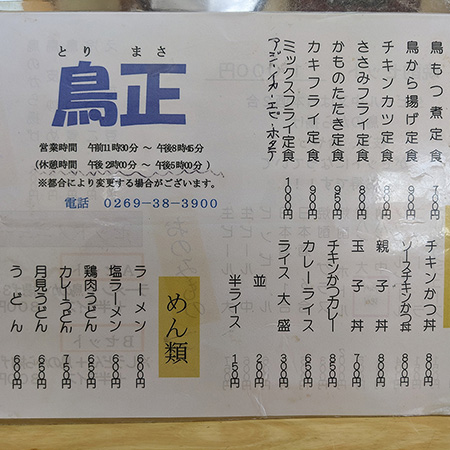 とり まさ
鳥正
営業時間 午前11時30分 ～ 午後8時45分
(休憩時間 午後2時00分 ～ 午後5時00分)
※都合により変更する場合がございます。
電話 0269-38-3900
鳥もつ煮定食
鳥から揚げ定食
チキンカツ定食
ささみフライ定食
かものたたき定食
カキフライ定食
ミックスフライ定食
アジ・イカ・エビ・ホタテ
チキンかつ丼
ソースチキンかつ丼
親子丼
玉子丼
チキンかつカレー 850円
カレーライス 650円
ライス大盛 300円
並 200円
半ライス 150円
めん類
ラーメン 600円
塩ラーメン 600円
鶏肉うどん
カレーうどん 750円
月見うどん 650円
うどん 600円